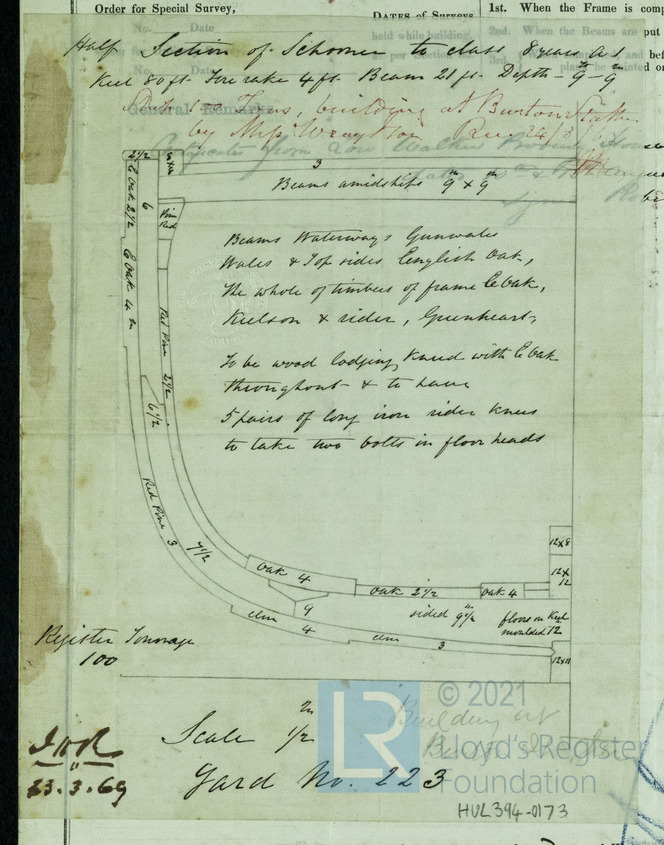 Order for Special Survey,
No. Date
No. Date
DATES of Surveys
held while building,
1st. When the Frame is comp
2nd. When the Beams are put
3rd.
Half Section of Schooner to class 8 years A 1
Keel 80 ft Fore rake 4 ft Beam 21 ft Depth – 9 – 9
General Remarks
100 Tons, building at Burton Stather
by Miss Wray &
2 1/2
8 x 8
3
Beams amidships 9 x 9
E Oak 2 1/2
6
Pine
Red
E Oak 4 in
Red Pine 2 1/2
6 1/2
Red Pine 3
7 1/2
Beams Waterways Gunwales
Wales & Top sides English Oak,
The whole of timbers of frame E Oak,
Keelson & rider, Greenheart,
To be wood lodging kneed with E Oak
throughout & to have
5 pairs of long iron rider knees
to take two bolts in floor heads
12 x 8
12 x
12
Oak 4
Oak 2 1/2
Oak 4
9
sided 9 1/2
floors on Keel
moulded 12
elm
4
elm
3
12 x 11
Register Tonnage
100
Scale 1/2 in
Building at
Yard No. 223
23.3.69
© 2021
LR
Lloyd's Register
Foundation
HUL394-0173